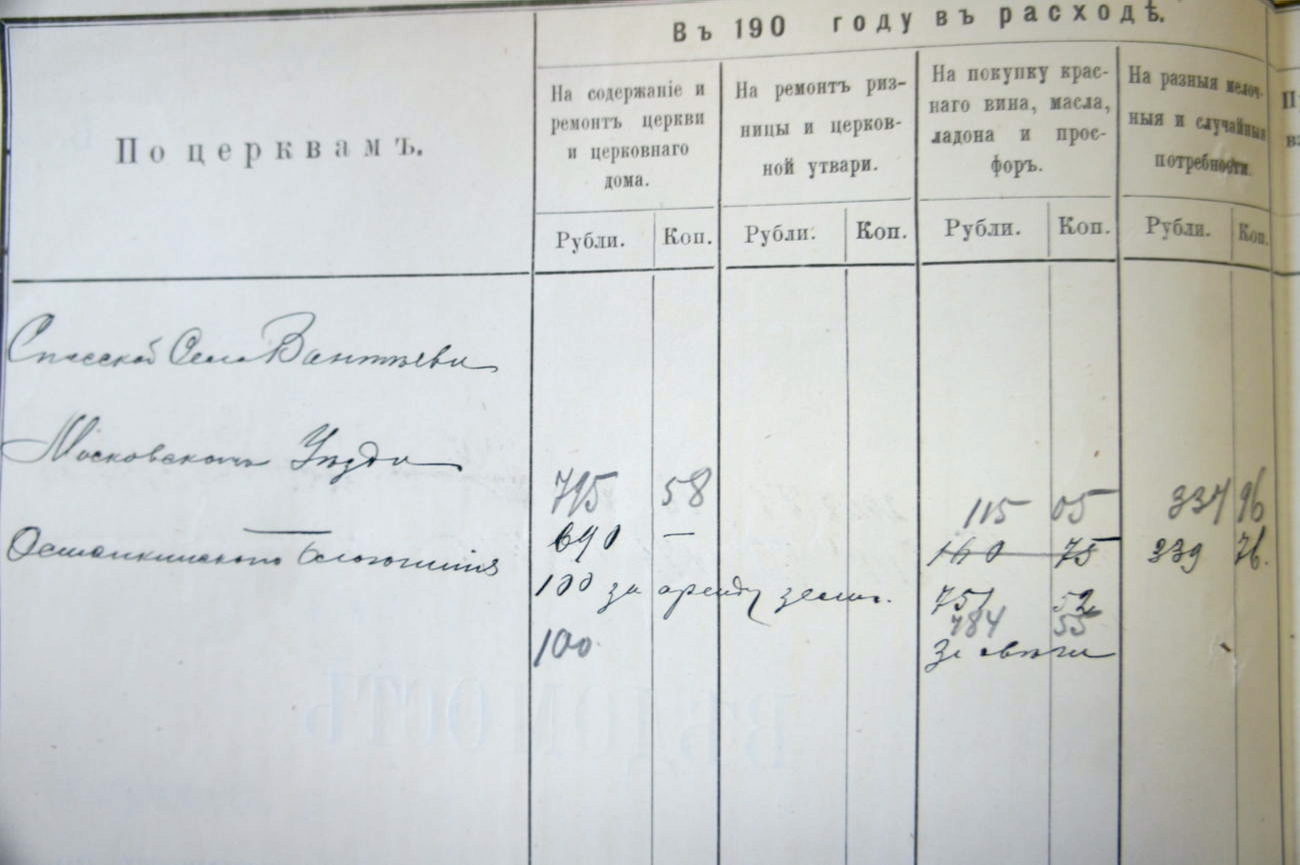 Въ 190 году въ расходѣ.
По церквамъ.
На содержаніе и
ремонтъ церкви
и церковнаго
дома.
На ремонтъ риз-
ницы и церков-
ной утвари.
На покупку крас-
наго вина, масла,
ладона и прос-
форъ.
На разныя мелоч-
ныя и случайныя
потребности.
Рубли. Коп. Рубли. Коп. Рубли. Коп. Рубли. Коп.
Спасской Села
Московскомъ Уѣзда
58 115 05 337 96
690 — 160 75 339 76.
Останкинскаго благочинія
100 за аренду земли. 751 52
784 55
100 За свѣчи
ВѢДОМОСТЬ